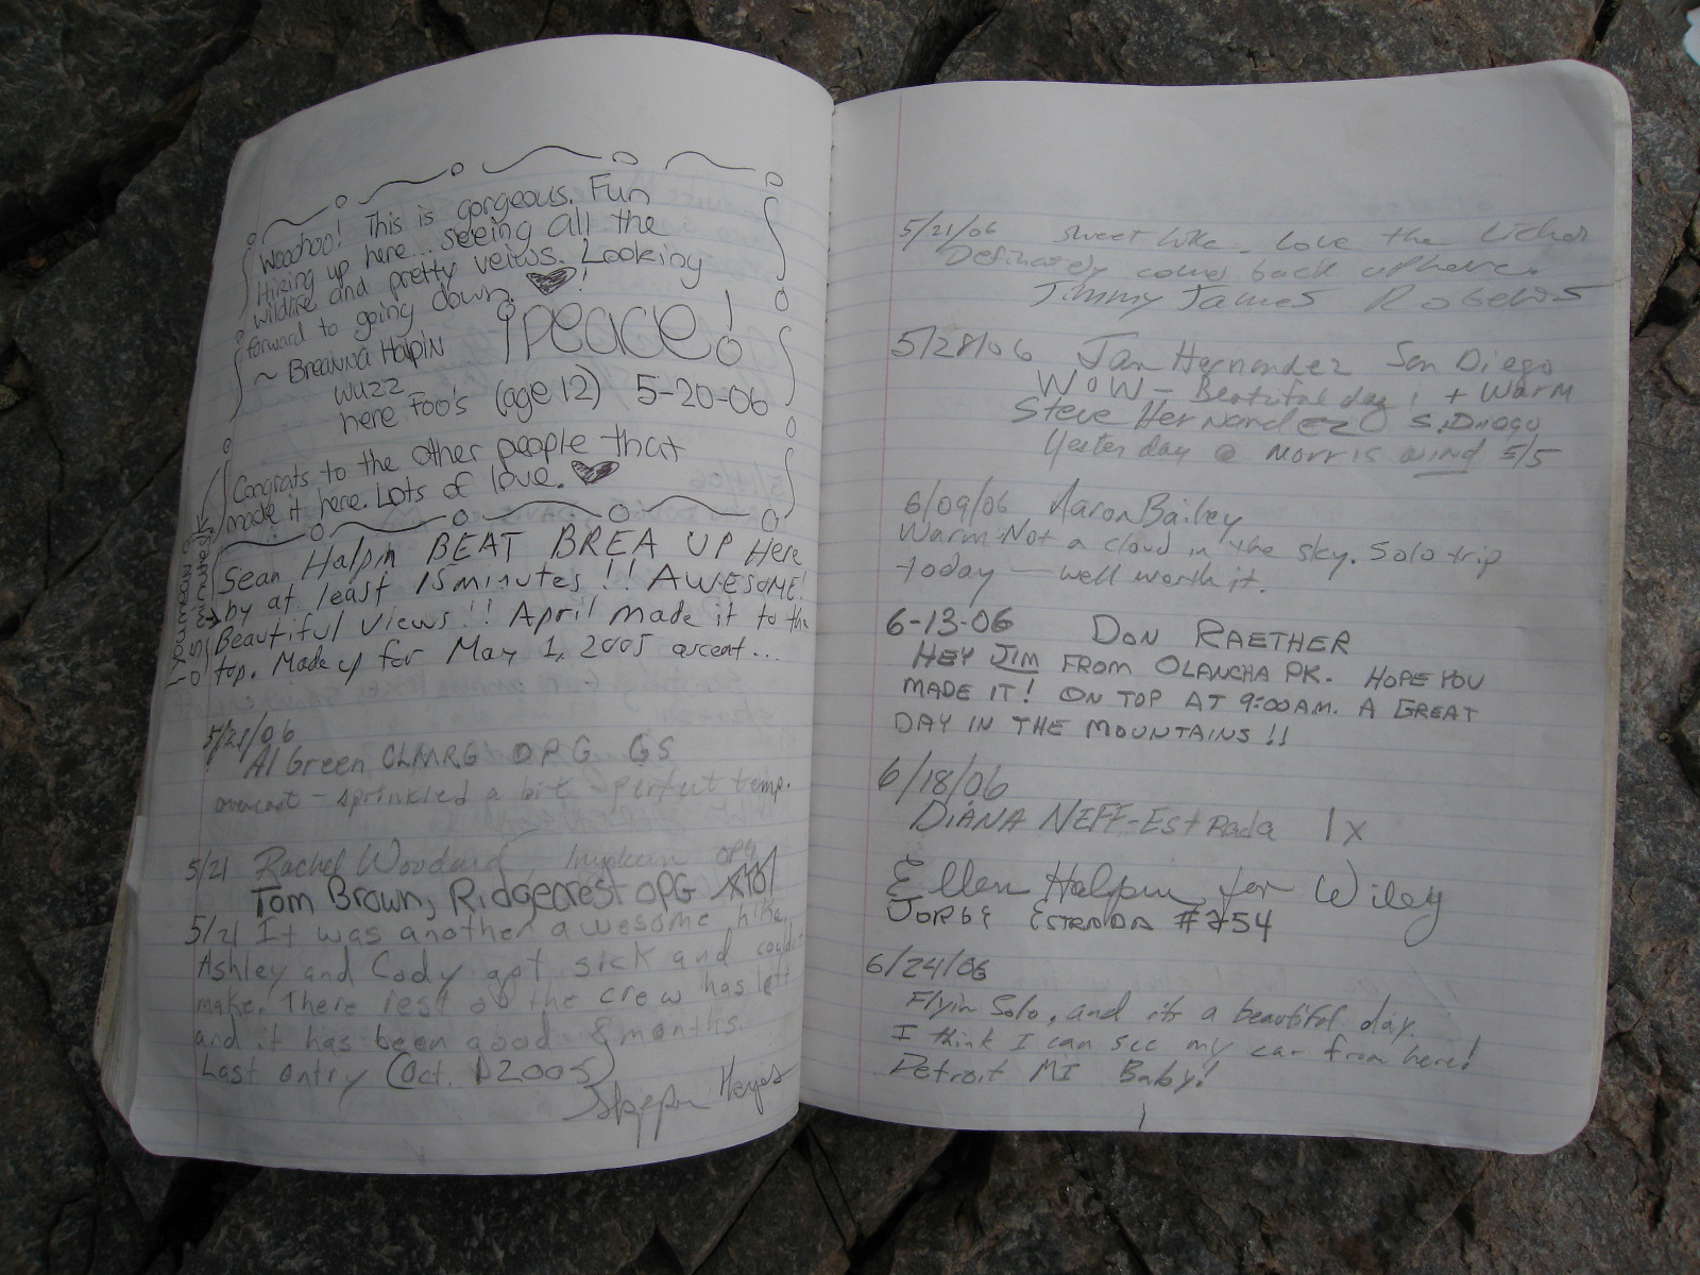 Woohoo! This is gorgeous. Fun
Hiking up here... seeing all the
wildlife and pretty veiws. Looking
forward to going down. !
¡Peace!
~ Breanna Halpin
wuzz
here Foo's (age 12) 5-20-06
Congrats to the other people that
made it here. Lots of love.
Sean Halpin BEAT BREA UP Here
by at least 15 minutes!! AWESOME!
Beautiful views!! April made it to the
top. Made up for May 1, 2005 ascent...
5/21/06
Al Green CLMRG OPG GS
overcast - sprinkled a bit - Perfect temp.
5/21 Rachel Woodard OPG
Tom Brown, Ridgecrest OPG
5/21 It was another awesome hike.
Ashley and Cody got sick and couldn't
make. There rest of the crew has left
and it has been good 8 months.
Last entry (Oct. 2005)
Hayes
5/21/06 Sweet hike. Love the
Definately come back up here.
Jimmy James Roberts
5/28/06 Jan Hernandez San Diego
WOW - Beatiful day! + Warm
Steve Hernandez S. Diego
Yesterday @ Morris wind 5/5
6/09/06 Aaron Bailey
Warm-Not a cloud in the sky. Solo trip
today — well worth it.
6-13-06 DON RAETHER
HEY JIM FROM OLANCHA PK. HOPE YOU
MADE IT! ON TOP AT 9:00AM. A GREAT
DAY IN THE MOUNTAINS!!
6/18/06
DIANA NEFF-EstRada 1x
Ellen Halpin for Wiley
JORGE ESTRADA #254
6/24/06
Flyin Solo, and it's a beautiful day.
I think I can see my car from here!
Detroit MI Baby!